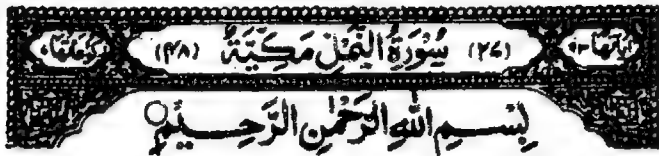 اٰيَاتُهَا ٩٣ (٢٧) سُوْرَةُ النَّمْلِ مَكِّيَّةٌ (٤٨) رُكُوْعَاتُهَا ٧
بِسْمِ اللّٰهِ الرَّحْمٰنِ الرَّحِيْمِ